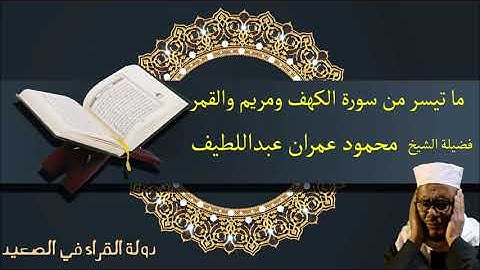 ما تيسر من سورة الكهف ومريم والقمر
فضيلة الشيخ محمود عمران عبداللطيف
دولة القراء في الصعيد